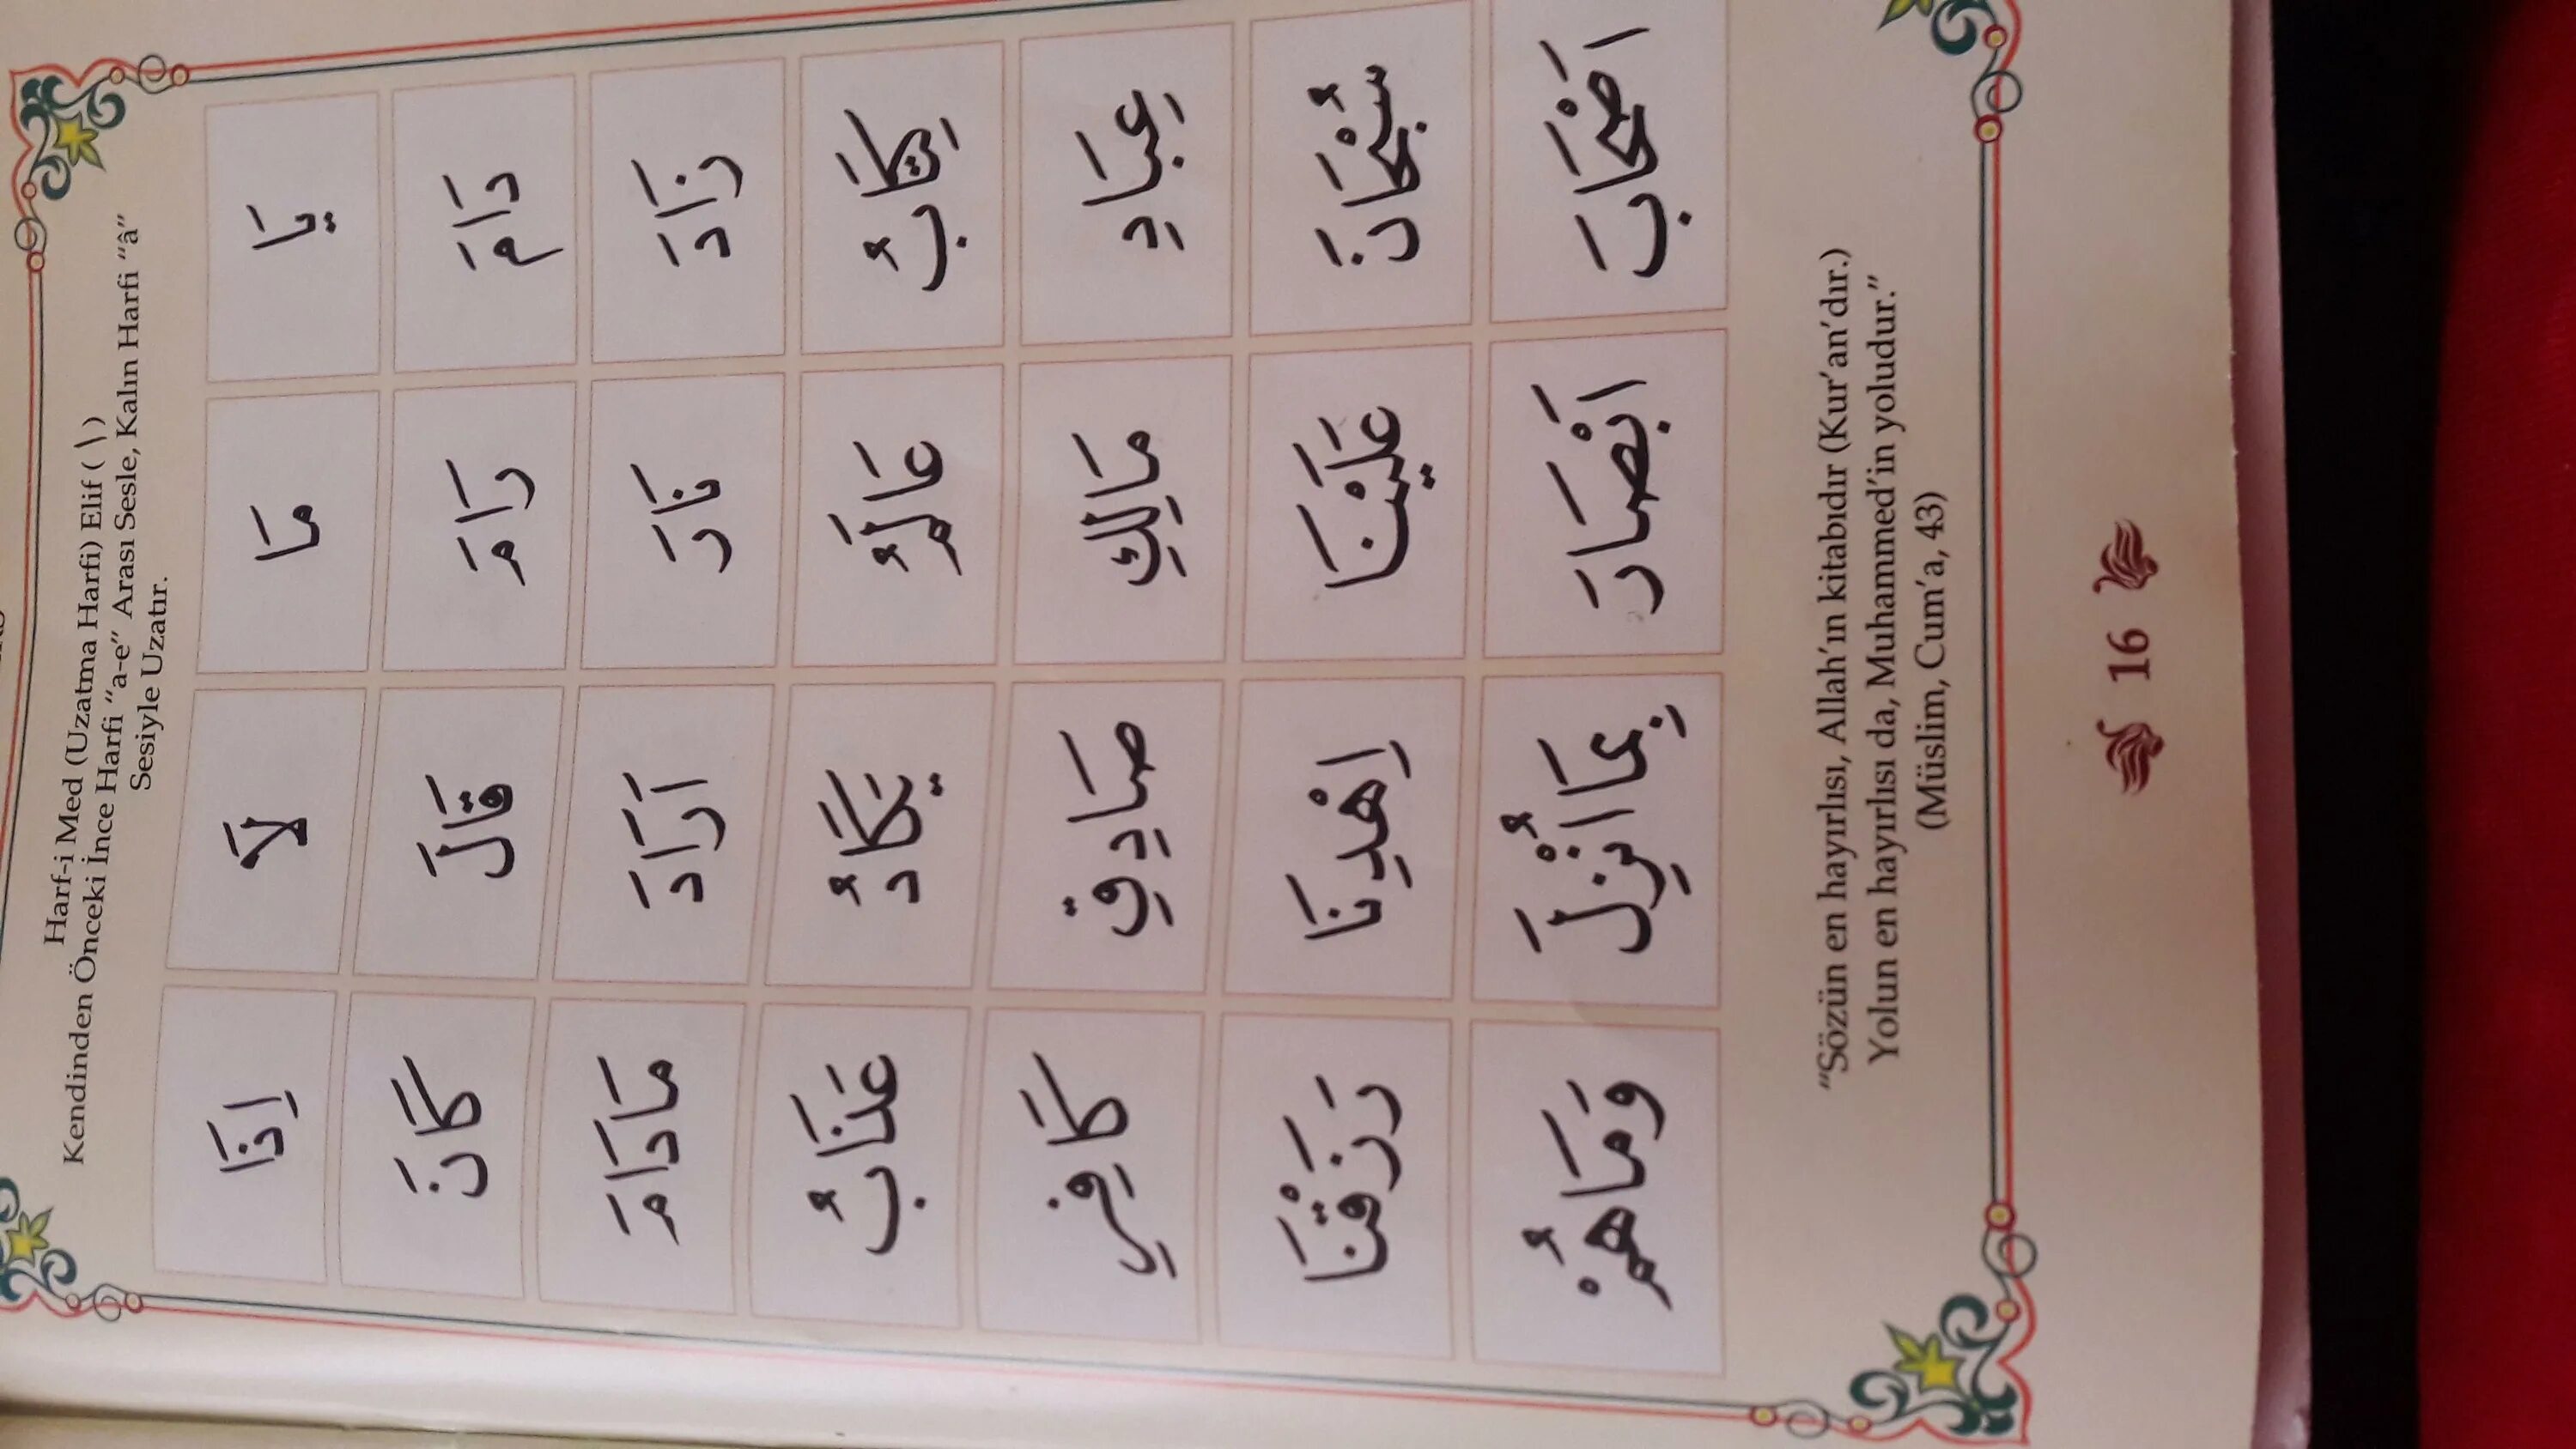 Harf-i Med (Uzatma Harfi) Elif ( ا )
Kendinden Önceki İnce Harfi "a-e" Arası Sesle, Kalın Harfi "â"
Sesiyle Uzatır.
يَا مَا لَا اِذَا
دَامَ رَامَ قَالَ كَانَ
زَادَ نَارَ اَرَادَ مَادَامَ
كِتَابُ عَالَمُ يَكَادُ عَذَابُ
عِبَادِ مَالِكِ صَادِقِ كَافِرِ
سُبْحَانَ عَلَيْنَا اِهْدِنَا رَزَقْنَا
اَصْحَابَ اَبْصَارَ بِمَا اُنْزِلَ وَمَاهُمْ
"Sözün en hayırlısı, Allah'ın kitabıdır (Kur'an'dır.)
Yolun en hayırlısı da, Muhammed'in yoludur."
(Müslim, Cum'a, 43)
16